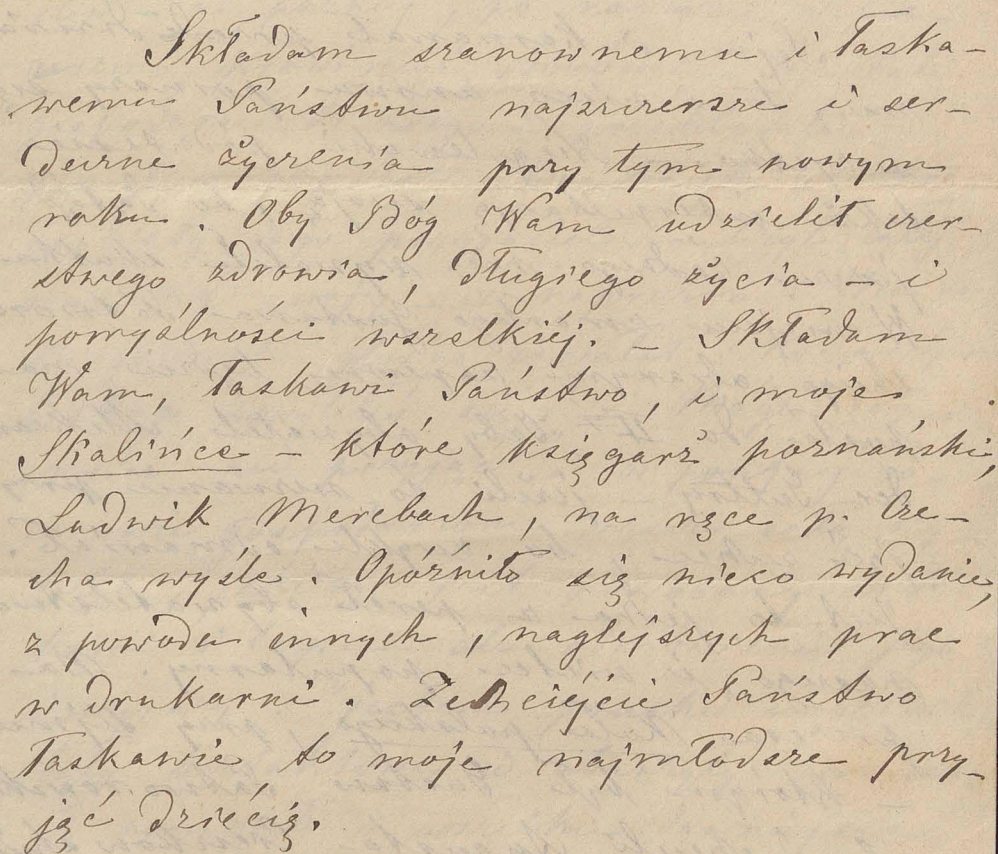 Składam szanownemu i łaska-
wemu Państwu najszczersze i ser-
deczne życzenia przy tym nowym
roku. Oby Bóg Wam udzielił czer-
stwego zdrowia, długiego życia – i
pomyślności wszelkiéj. – Składam
Wam, łaskawi Państwo, i moje
Skalińce – które księgarz poznański,
Ludwik Merzbach, na ręce p. Cze-
cha wyśle. Opóźniło się nieco wydanie,
z powodu innych, naglejszych prac
w drukarni. Zechciéjcie Państwo
łaskawie to moje najmłodsze przy-
jąć dziécię.